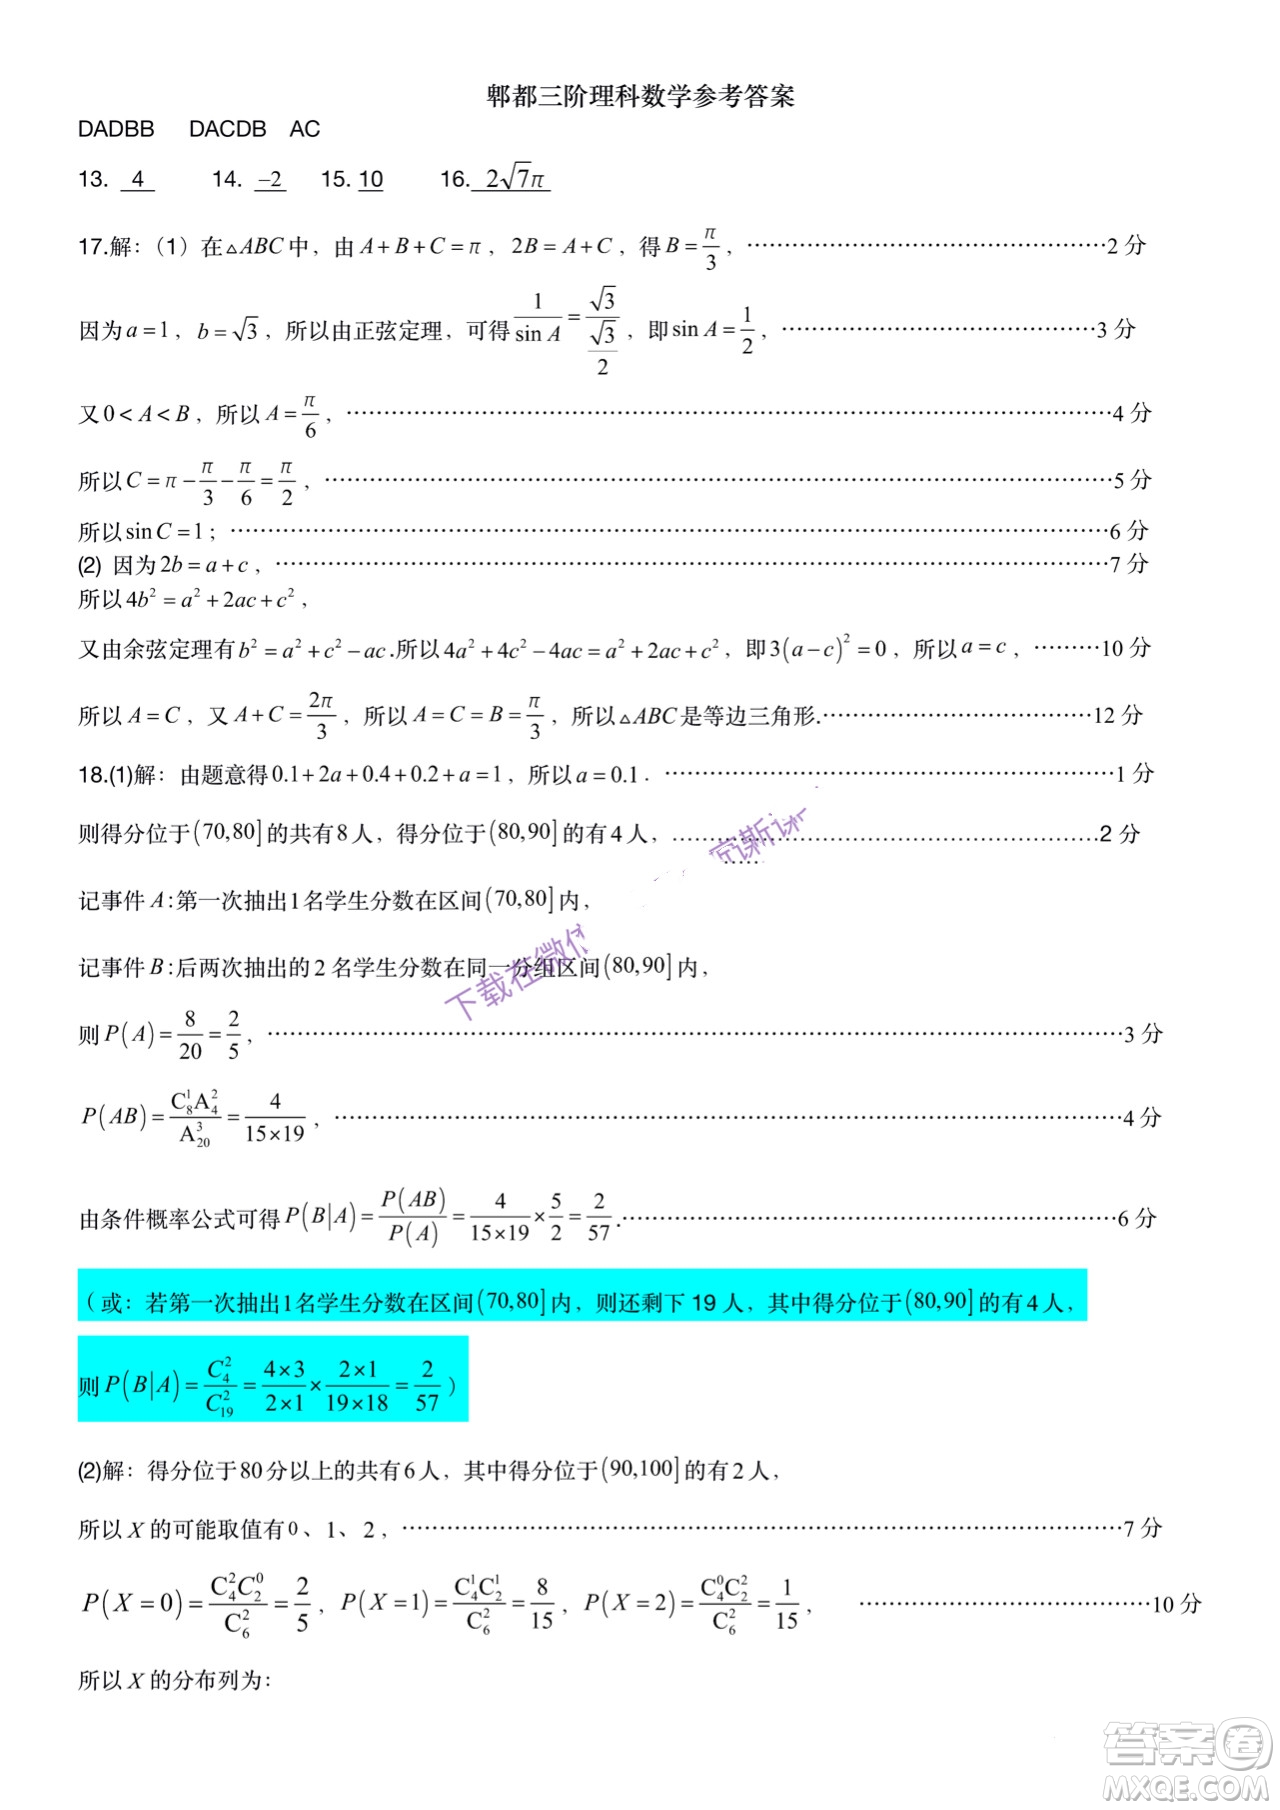 郫都三阶理科数学参考答案
DADBB DACDB AC
13. 4 14. −2 15. 10 16. 2√7π
17.解：（1）在△ABC中，由A+B+C=π，2B=A+C，得B=π/3，……2 分
因为a=1，b=√3，所以由正弦定理，可得1/sin A=√3/(√3/2)，即sin A=1/2，……3 分
又0<A<B，所以A=π/6，……4 分
所以C=π−π/3−π/6=π/2，……5 分
所以sin C=1；……6 分
(2) 因为2b=a+c，……7 分
所以4b²=a²+2ac+c²，
又由余弦定理有b²=a²+c²−ac.所以4a²+4c²−4ac=a²+2ac+c²，即3(a−c)²=0，所以a=c，……10 分
所以A=C，又A+C=2π/3，所以A=C=B=π/3，所以△ABC是等边三角形.……12 分
18.(1)解：由题意得0.1+2a+0.4+0.2+a=1，所以a=0.1．……1 分
则得分位于(70,80]的共有8人，得分位于(80,90]的有4人，……2 分
记事件A:第一次抽出1名学生分数在区间(70,80]内，
记事件B:后两次抽出的2名学生分数在同一分组区间(80,90]内，
下载在微信
则P(A)=8/20=2/5，……3 分
P(AB)=C₈¹A₄²/A₂₀³=4/(15×19)，……4 分
由条件概率公式可得P(B|A)=P(AB)/P(A)=4/(15×19)×5/2=2/57.……6 分
（或：若第一次抽出1名学生分数在区间(70,80]内，则还剩下 19 人，其中得分位于(80,90]的有4人，
则P(B|A)=C₄²/C₁₉²=(4×3)/(2×1)×(2×1)/(19×18)=2/57）
(2)解：得分位于80分以上的共有6人，其中得分位于(90,100]的有2人，
所以X的可能取值有0、1、2，……7 分
P(X=0)=C₄²C₂⁰/C₆²=2/5，P(X=1)=C₄¹C₂¹/C₆²=8/15，P(X=2)=C₄⁰C₂²/C₆²=1/15，……10 分
所以X的分布列为：
答案卷
MXQE.COM